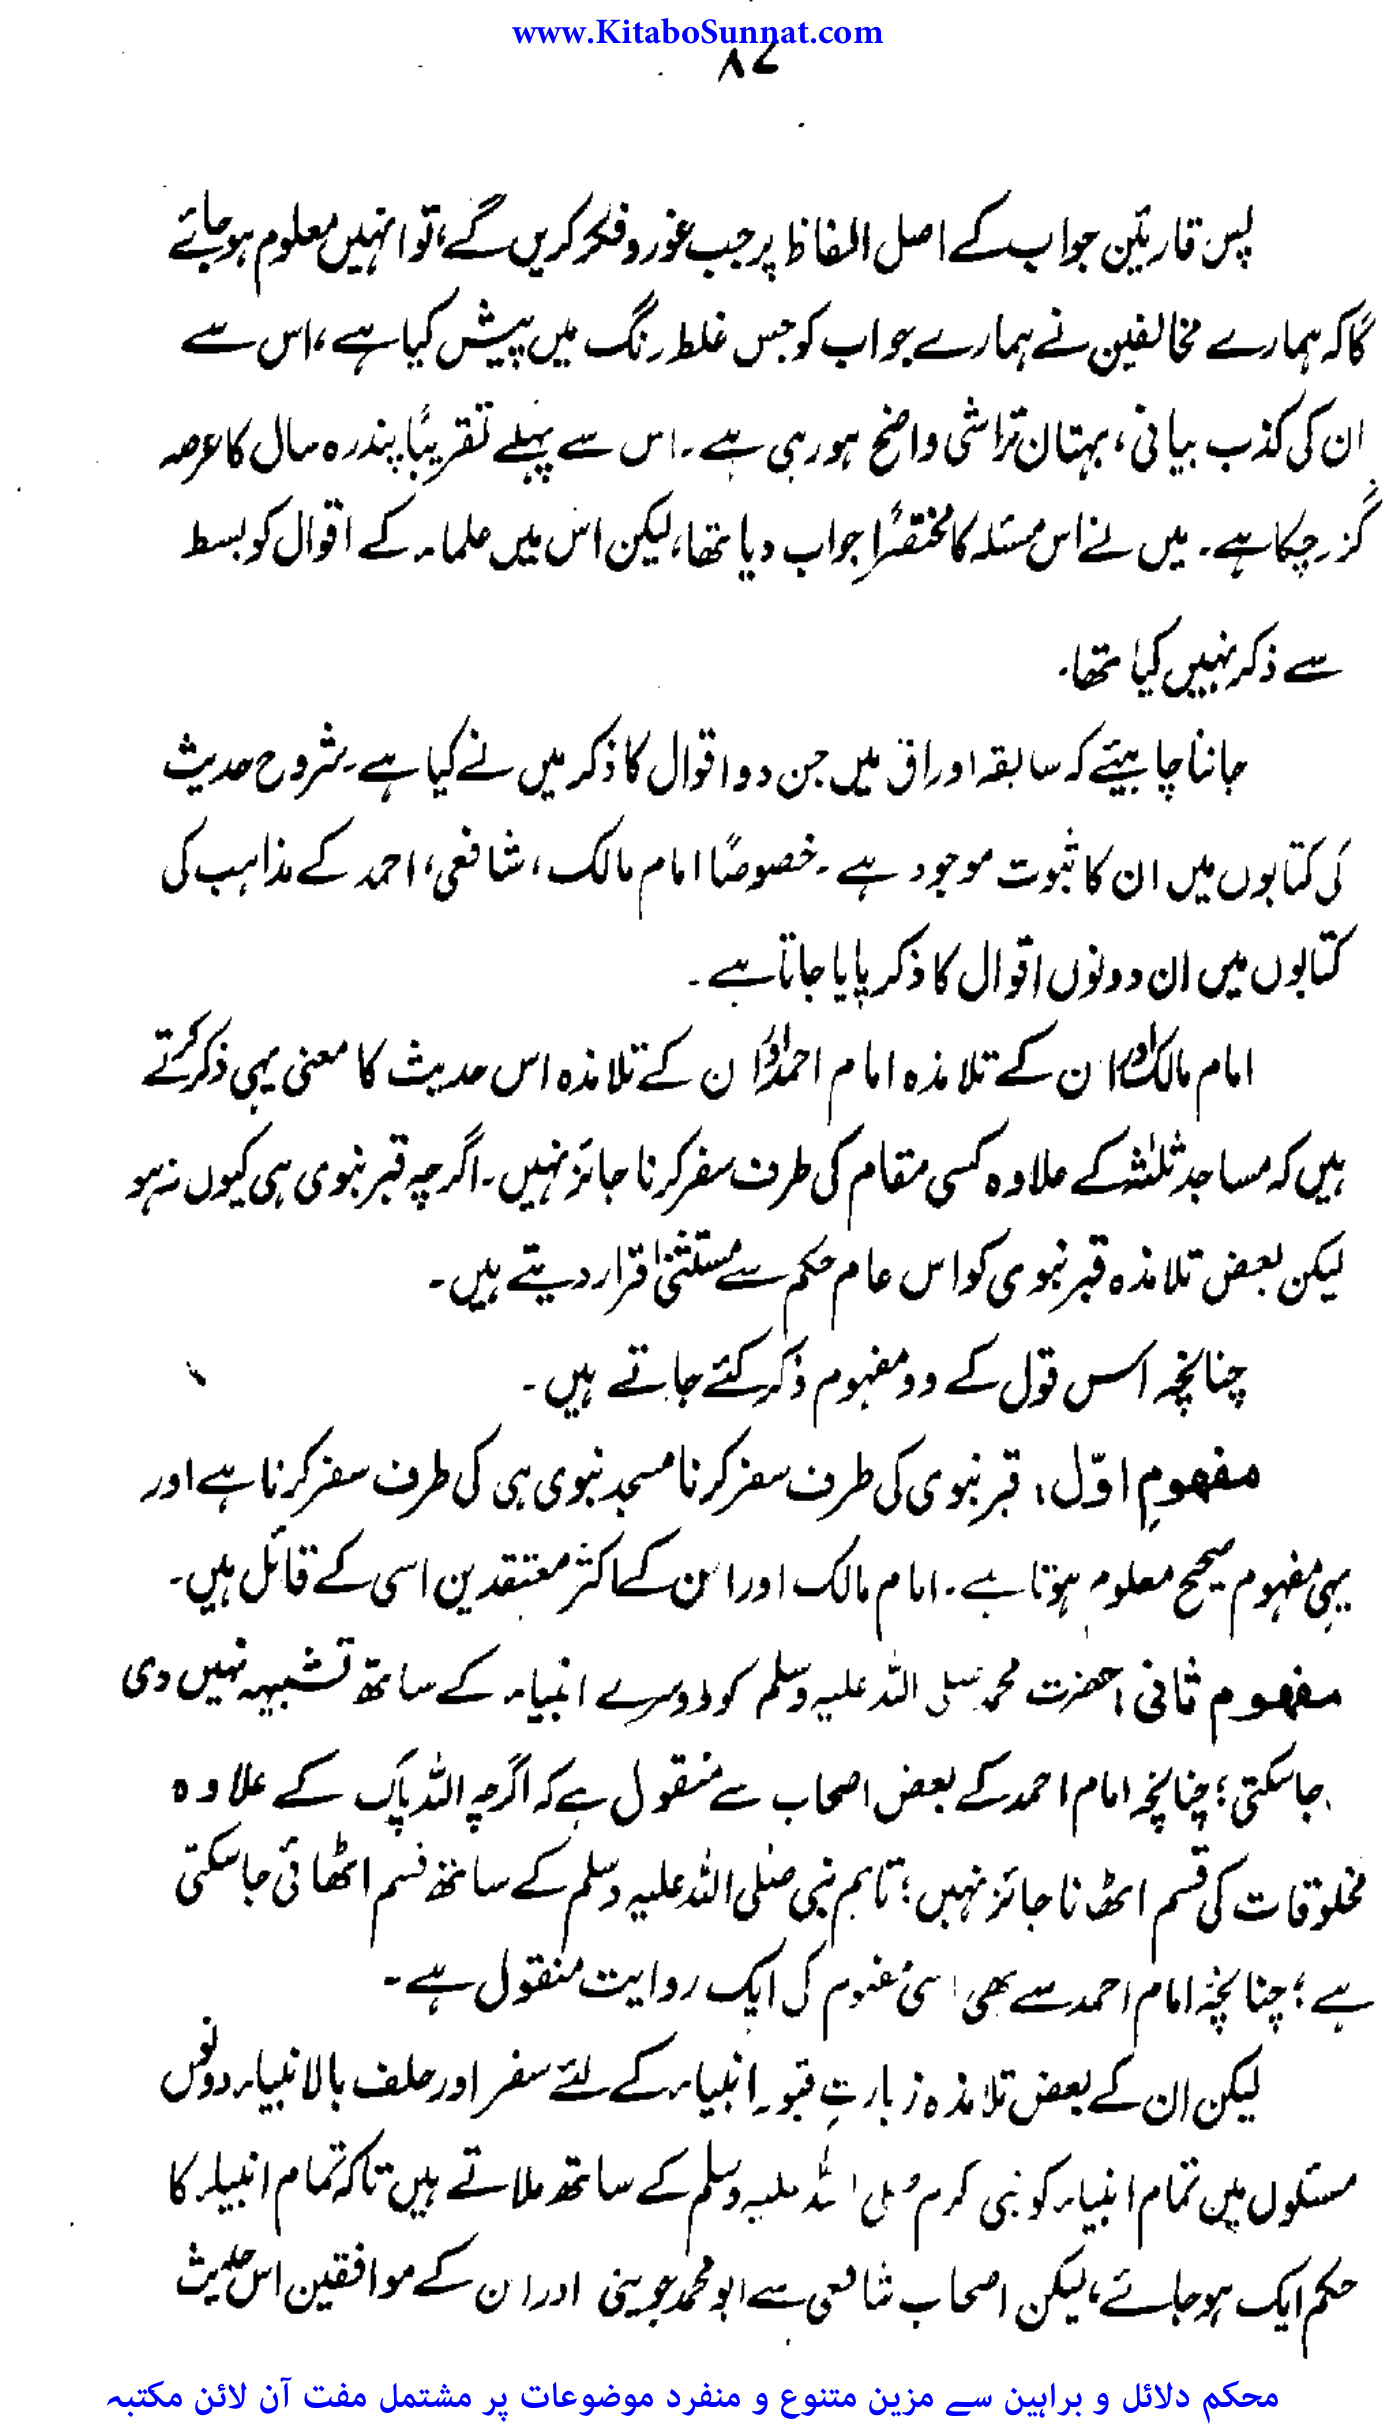 www.KitaboSunnat.com
۸۷
پس قارئین جواب کے اصل الفاظ پر جب غور و فکر کریں گے، تو انہیں معلوم ہو جائے
گا کہ ہمارے مخالفین نے ہمارے جواب کو جس غلط رنگ میں پیش کیا ہے، اس سے
ان کی کذب بیانی، بہتان تراشی واضح ہو رہی ہے۔ اس سے پہلے تقریبًا پندرہ سال کا عرصہ
گزر چکا ہے۔ میں نے اس مسئلہ کا مختصرًا جواب دیا تھا، لیکن اس میں علماء کے اقوال کو بسط
سے ذکر نہیں کیا تھا۔
جاننا چاہیئے کہ سابقہ اوراق میں جن دو اقوال کا ذکر میں نے کیا ہے۔ شروح حدیث
کی کتابوں میں ان کا ثبوت موجود ہے۔ خصوصًا امام مالک، شافعی، احمد کے مذاہب کی
کتابوں میں ان دونوں اقوال کا ذکر پایا جاتا ہے۔
امام مالک اور ان کے تلامذہ امام احمد اور ان کے تلامذہ اس حدیث کا معنی یہی ذکر کرتے
ہیں کہ مساجد ثلٰثہ کے علاوہ کسی مقام کی طرف سفر کرنا جائز نہیں۔ اگرچہ قبر نبوی ہی کیوں نہ ہو
لیکن بعض تلامذہ قبر نبوی کو اس عام حکم سے مستثنیٰ قرار دیتے ہیں۔
چنانچہ اس قول کے دو مفہوم ذکر کئے جاتے ہیں۔
مفہومِ اوّل، قبر نبوی کی طرف سفر کرنا مسجد نبوی ہی کی طرف سفر کرنا ہے اور
یہی مفہوم صحیح معلوم ہوتا ہے۔ امام مالک اور ان کے اکثر معتقدین اسی کے قائل ہیں۔
مفہوم ثانی، حضرت محمد صلی اللہ علیہ وسلم کو دوسرے انبیاء کے ساتھ تشبیہہ نہیں دی
جا سکتی؛ چنانچہ امام احمد کے بعض اصحاب سے منقول ہے کہ اگرچہ اللہ پاک کے علاوہ
مخلوقات کی قسم اٹھانا جائز نہیں؛ تاہم نبی صلی اللہ علیہ وسلم کے ساتھ قسم اٹھائی جا سکتی
ہے؛ چنانچہ امام احمد سے بھی اسی مفہوم کی ایک روایت منقول ہے۔
لیکن ان کے بعض تلامذہ زیارتِ قبورِ انبیاء کے لئے سفر اور حلف بالانبیاء دونوں
مسئلوں میں تمام انبیاء کو نبی کرم صلی اللہ علیہ وسلم کے ساتھ ملاتے ہیں تاکہ تمام انبیاء کا
حکم ایک ہو جائے، لیکن اصحاب شافعی سے ابو محمد جوینی اور ان کے موافقین اس حدیث
محکم دلائل و براہین سے مزین متنوع و منفرد موضوعات پر مشتمل مفت آن لائن مکتبہ